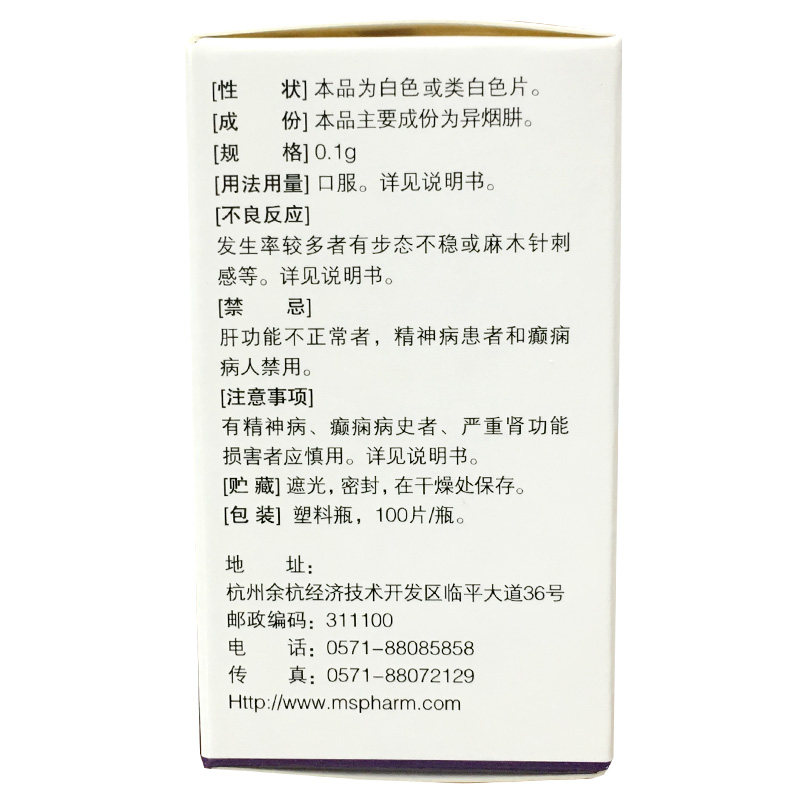 [性　　状] 本品为白色或类白色片。
[成　　份] 本品主要成份为异烟肼。
[规　　格] 0.1g
[用法用量] 口服。详见说明书。
[不良反应]
发生率较多者有步态不稳或麻木针刺
感等。详见说明书。
[禁　　忌]
肝功能不正常者，精神病患者和癫痫
病人禁用。
[注意事项]
有精神病、癫痫病史者、严重肾功能
损害者应慎用。详见说明书。
[贮 藏] 遮光，密封，在干燥处保存。
[包 装] 塑料瓶，100片/瓶。
地　　址：
杭州余杭经济技术开发区临平大道36号
邮政编码：311100
电　　话：0571-88085858
传　　真：0571-88072129
Http://www.mspharm.com